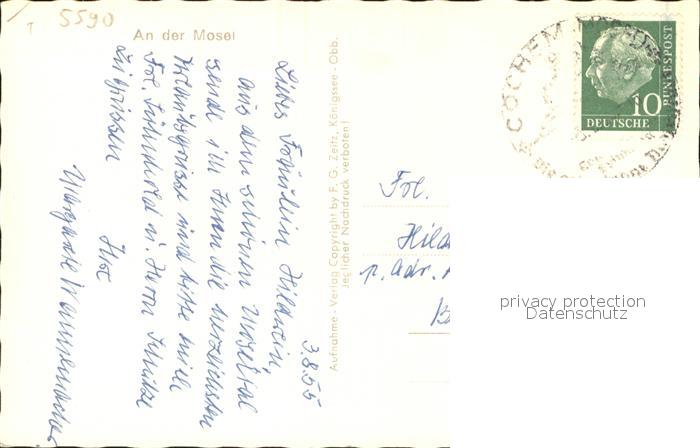 5590
An der Mosel
3.8.55
Liebes Fräulein Hildwein,
aus dem schönen Moseltal
sende ich Ihnen die herzlichsten
Urlaubsgrüsse und bitte auch
Frl. u. Herrn Schulze
zu grüssen
Ihre
Margarete
Aufnahme - Verlag Copyright by F. G. Zeitz, Königssee - Obb.
Jeglicher Nachdruck verboten!
COCHEM
10
DEUTSCHE
BUNDESPOST
Frl.
Hild
p. Adr.
B
privacy protection
Datenschutz